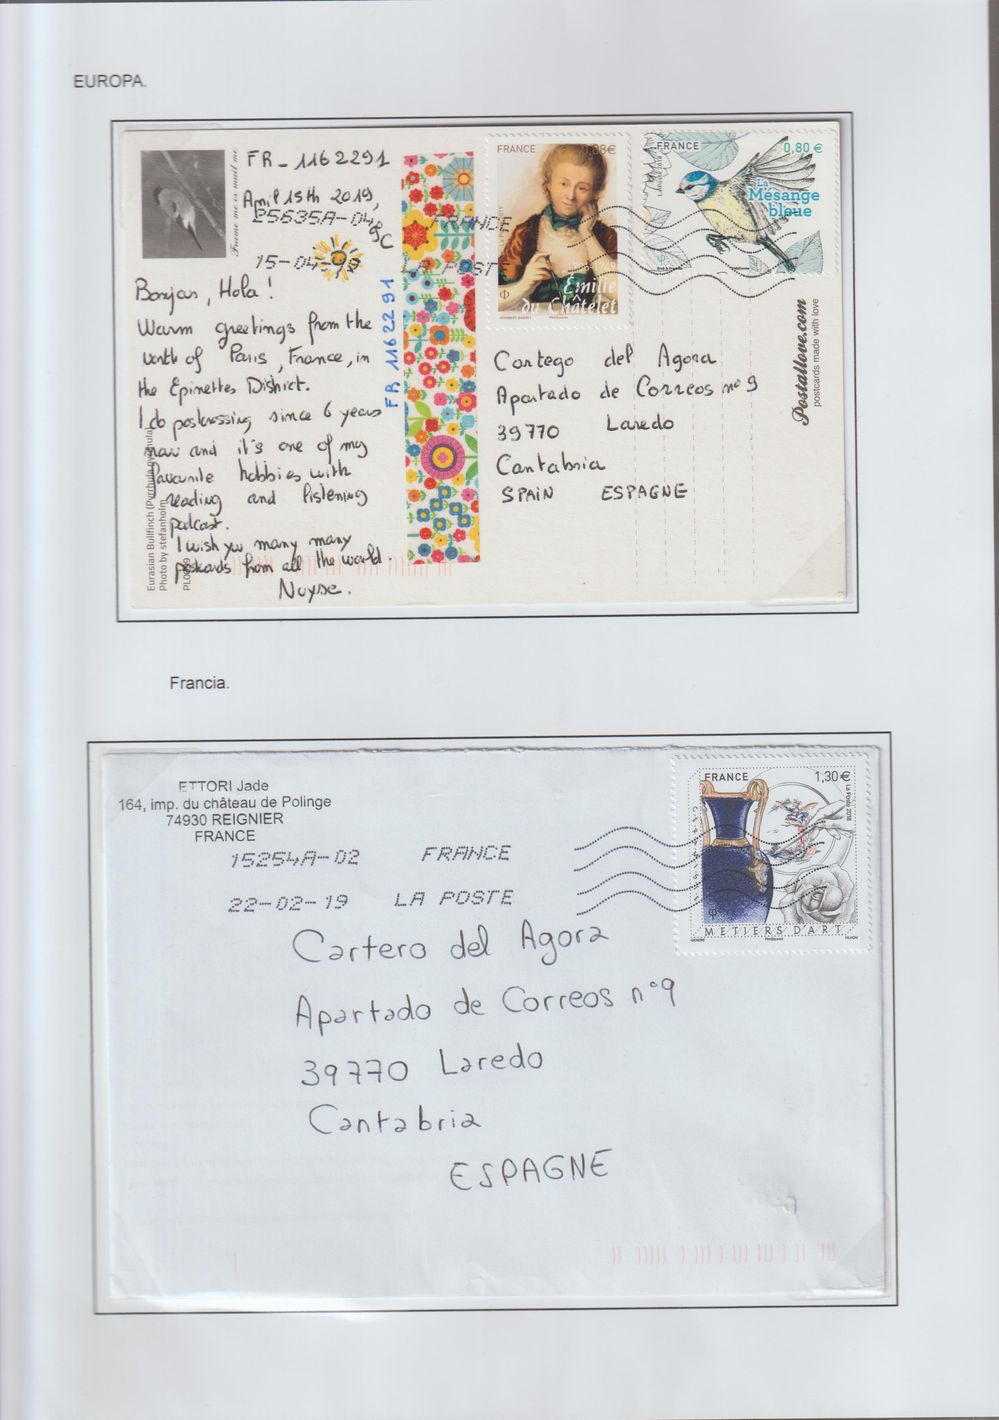 EUROPA.
FR_1162291
April 15th 2019,
25635A-04
15-04-19
FRANCE
LA POSTE
Frame me or mail me
Bonjour, Hola!
Warm greetings from the
north of Paris, France, in
the Epinettes District.
I do postcrossing since 6 years
now and it's one of my
favourite hobbies with
reading and listening
podcast.
I wish you many many
postcards from all the world.
FR 1162291
Eurasian Bullfinch (Pyrrhula pyrrhula)
Photo by stefanholm
FRANCE
Émilie
du Châtelet
FRANCE
0,80 €
La
Mésange
bleue
Cartego del Agora
Apartado de Correos n°9
39770 Laredo
Cantabria
SPAIN ESPAGNE
Postallove.com
postcards made with love
Francia.
ETTORI Jade
164, imp. du château de Polinge
74930 REIGNIER
FRANCE
15254A-02 FRANCE
22-02-19 LA POSTE
FRANCE 1,30 €
La Poste 2018
MÉTIERS D'ART
Cartero del Agora
Apartado de Correos n°9
39770 Laredo
Cantabria
ESPAGNE